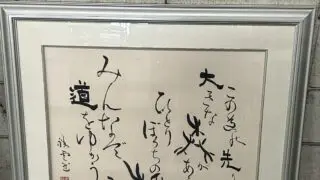 このみちの先
大きな森があ
ひとり
ぼっちの
みんなで
道をゆかう